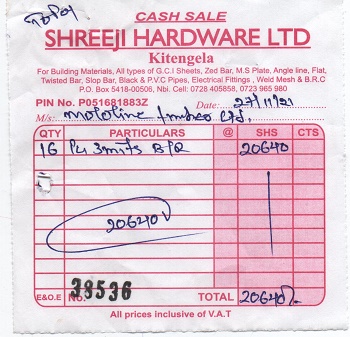 CASH SALE
SHREEJI HARDWARE LTD
Kitengela
For Building Materials, All types of G.C.I Sheets, Zed Bar, M.S Plate, Angle line, Flat,
Twisted Bar, Slop Bar, Black & P.V.C Pipes, Electrical Fittings , Weld Mesh & B.R.C
P.O. Box 5418-00506, Nbi. Cell: 0728 405858, 0723 965 980
PIN No. P051681883Z Date: 27/11/21
M/s: Ltd.
QTY PARTICULARS @ SHS CTS
16 Pcs 20640
20640
E&O.E No. 38536 TOTAL 20640
All prices inclusive of V.A.T